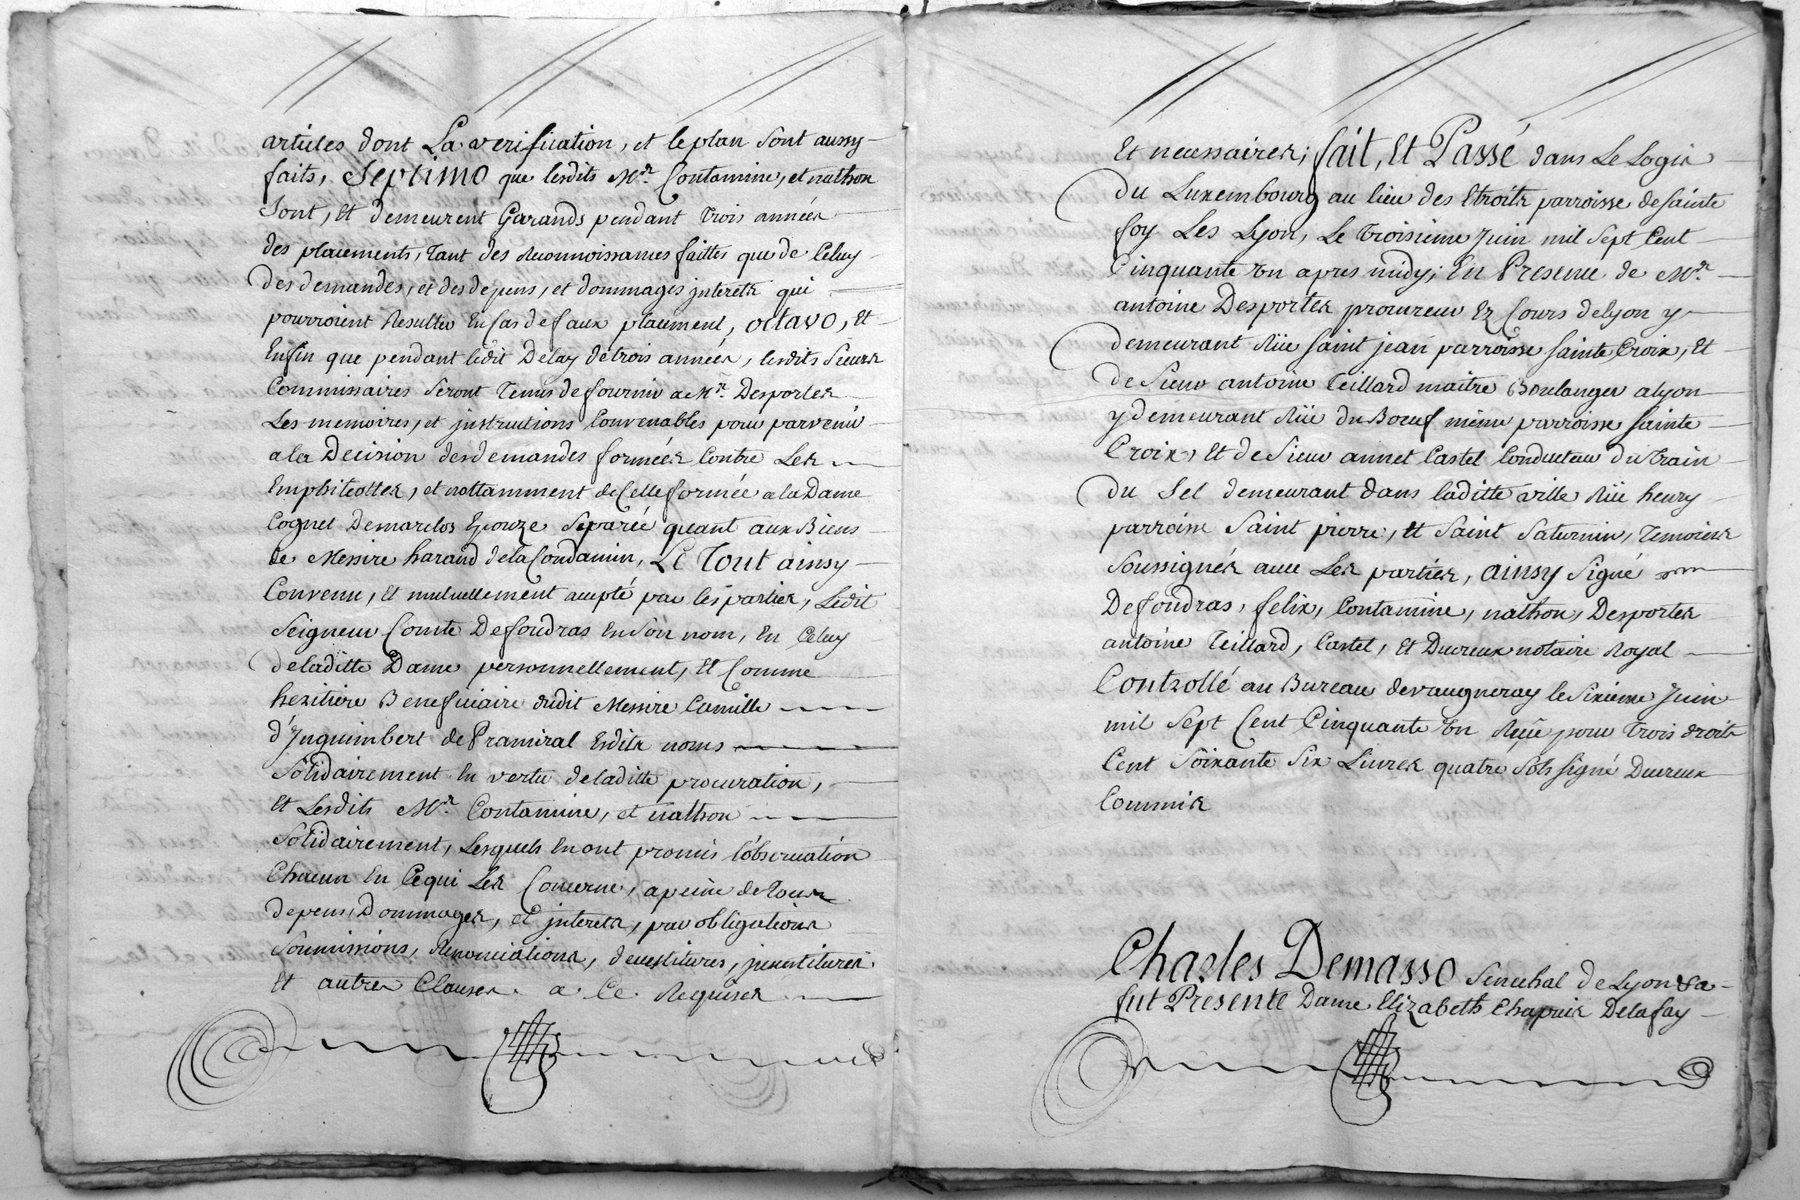 articles dont La verification, et le plan sont aussy
faits, Septimo que lesdits Mrs. Contamine, et nathon
sont, et demeurent Garands pendant trois années
des placements, tant des Reconnoissances faittes que de Celuy
des demandes, et des depens, et dommages jnterets qui
pourroient Resulter En Cas de faux placement, octavo, Et
Enfin que pendant ledit Delay de trois années, lesdits Sieurs
Commissaires seront Tenus de fournir a Mr. Desportes
Les memoires, et jnstructions Convenables pour parvenir
a la Decision des demandes formées Contre Les
Emphiteottes, et nottamment de Celle formée a la Dame
Cognet Demarclos Epouze Separée quant aux Biens
de Messire harand de la Condamin, Le Tout ainsy
Convenu, et mutuellement accepté par les parties, Ledit
Seigneur Comte Defoudras En son nom, En Celuy
de laditte Dame personnellement, Et Comme
heritiere Beneficiaire dudit Messire Camille
d'Jnguimbert de Pramiral Esdits noms
Solidairement En vertu de laditte procuration,
Et Lesdits Mrs. Contamine, et nathon
Solidairement, Lesquels En ont promis l'observation
Chacun En Ce qui Les Concerne, a peine de tous
depens, Dommages, et jnterets, par obligations
Soumissions, Renonciations, devestitures, jnvestitures
Et autres Clauses a Ce Requises
Et necessaires; fait, Et Passé dans Le Logis
du Luxembourg au lieu des Etroits parroisse de sainte
foy Les Lyon, Le Troisieme Juin mil sept Cent
Cinquante Un apres midy; En Presence de Me.
antoine Desportes procureur Ez Cours de lyon y
demeurant Rüe saint jean parroisse sainte Croix, Et
de Sieur antoine Teillard maitre Boulanger a lyon
y demeurant Rüe du Boeuf même parroisse sainte
Croix, Et de Sieur annet Castel Conducteur du Train
du Sel demeurant dans laditte ville Rüe henry
parroisse Saint pierre, et Saint Saturnin, Temoins
Soussignés avec Les parties, ainsy Signé
Defoudras, felix, Contamine, nathon, Desportes
antoine Teillard, Castel, Et Ducreux notaire Royal
Controllé au Bureau de vaugneray le Sixieme Juin
mil Sept Cent Cinquante Un Reçû pour Trois droits
Cent Soixante Six Livres quatre sols signé Ducreux
Commis
Charles Demasso Senechal de Lyon
fut Presente Dame Elizabeth Chapuis Delafay